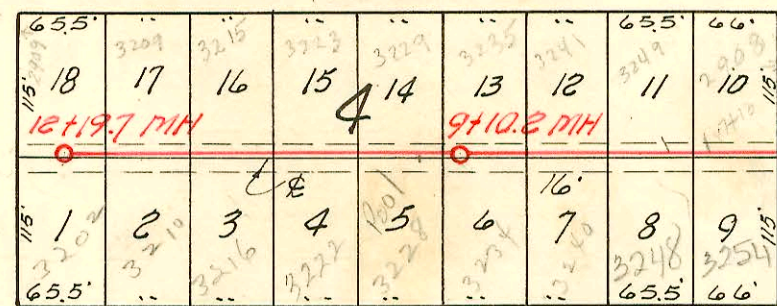 65.5' .. .. .. .. .. .. 65.5' 66'
3209 3215 3223 3229 3235 3241 3249 2908
115' 18 17 16 15 14 13 12 11 10 115'
4
12+19.7 MH 9+10.2 MH
℄ 16'
115' 1 2 3 4 5 6 7 8 9 115'
Pool
3202 3210 3216 3222 3228 3234 3240 3248 3254
65.5' .. .. .. .. .. .. 65.5' 66'